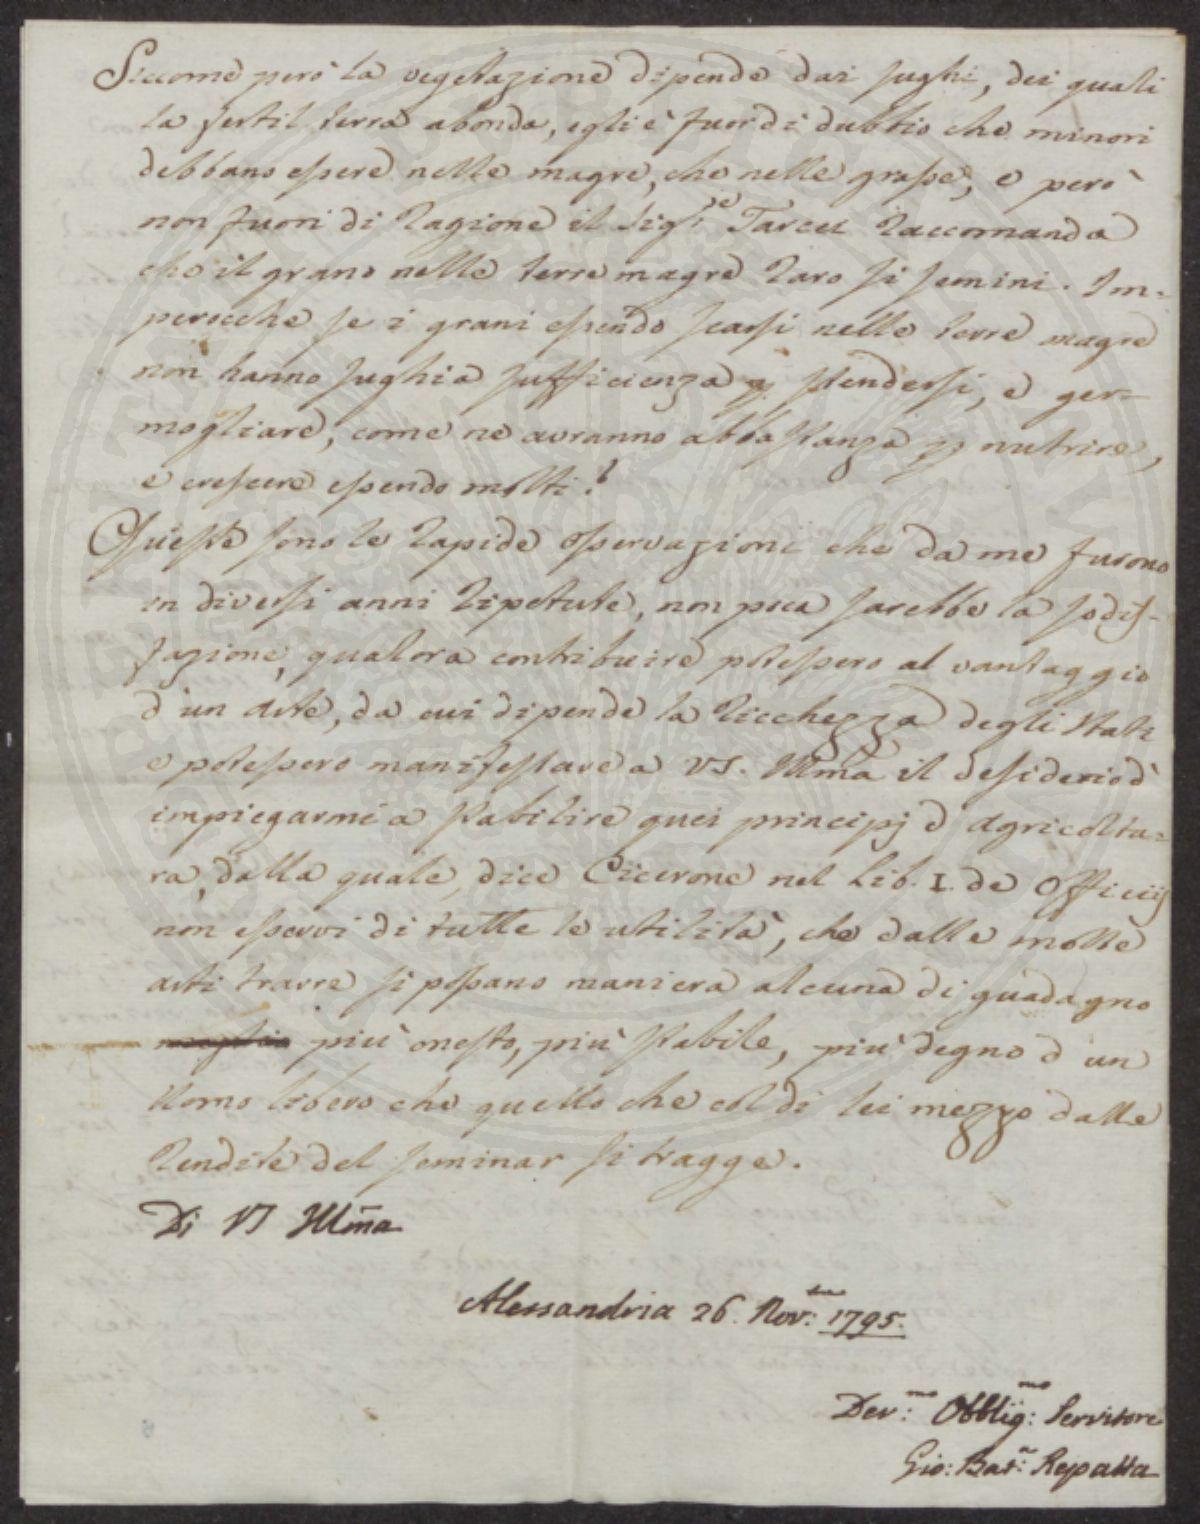 Siccome però la vegetazione dipende dai sughi, dei quali
la fertil terra abonda, egli è fuor di dubbio che minori
debbano essere nelle magre, che nelle grasse, e però
non fuori di ragione il Sig.re Tarcet raccomanda
che il grano nelle terre magre raro si semini. Im-
perocche se i grani essendo scarsi nelle terre magre
non hanno sughi a sufficienza p stendersi, e ger-
mogliare, come ne avranno abbastanza p nutrire,
e crescere essendo molti?
Queste sono le rapide osservazioni che da me furono
in diversi anni ripetute, non poca sarebbe la sodis-
fazione, qualora contribuire potessero al vantaggio
d'un Arte, da cui dipende la ricchezza degli Stati
e potessero manifestare a VS. Illma il desiderio d'
impiegarmi a stabilire quei principj d'Agricoltu-
ra, dalla quale, dice Cicerone nel Lib. I. de Officiis
non esservi di tutte le utilità, che dalle molte
arti trarre si possano maniera alcuna di guadagno
più onesto, più stabile, più degno d'un
Uomo libero che quello che col di lei mezzo dalle
rendite del seminar si tragge.
Di VS Illma
Alessandria 26. Nov.bre 1795.
Dev.mo Obblig.mo Servitore
Gio: Bat.a Rejpatta